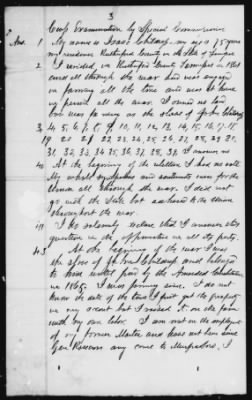 3
Exam Examination by Special Commissioner
Ans. 1 My name is Isaac Childress, my age is 75 years
my residence Rutherford County in the State of Tennessee
2 I resided in Rutherford County Tennessee in 1861
and all through the war and was engaged
in farming all the time and was at home
in person all the war. I owned no land
3, 4, 5, 6, 7, 8, 9, 10, 11, 12, 13, 14, 15, 16, 17, 18
19 20 21 22, 23, 24, 25, 26, 27, 28, 29, 30
31, 32, 33, 34, 35, 36, 37, 38, 39, I answer no
40 At the beginning of the rebellion I had no vote
My whole sympathies and sentiments were for the
Union all through the war. I did not
go with the State but adhered to the union
throughout the war.
41 I do solemnly declare that I answer this
question in the affirmative in all its parts.
43 At the beginning of the war I was
the slave of Childress and belonged
to him until freed by the
in 1865. I was farming since. I do not
know the date of the time I first got the property
on my own but I raised it on the farm
with my own labor. I am not in the employ
of my former Master and does not him since
Gen came to Murfreesboro. I